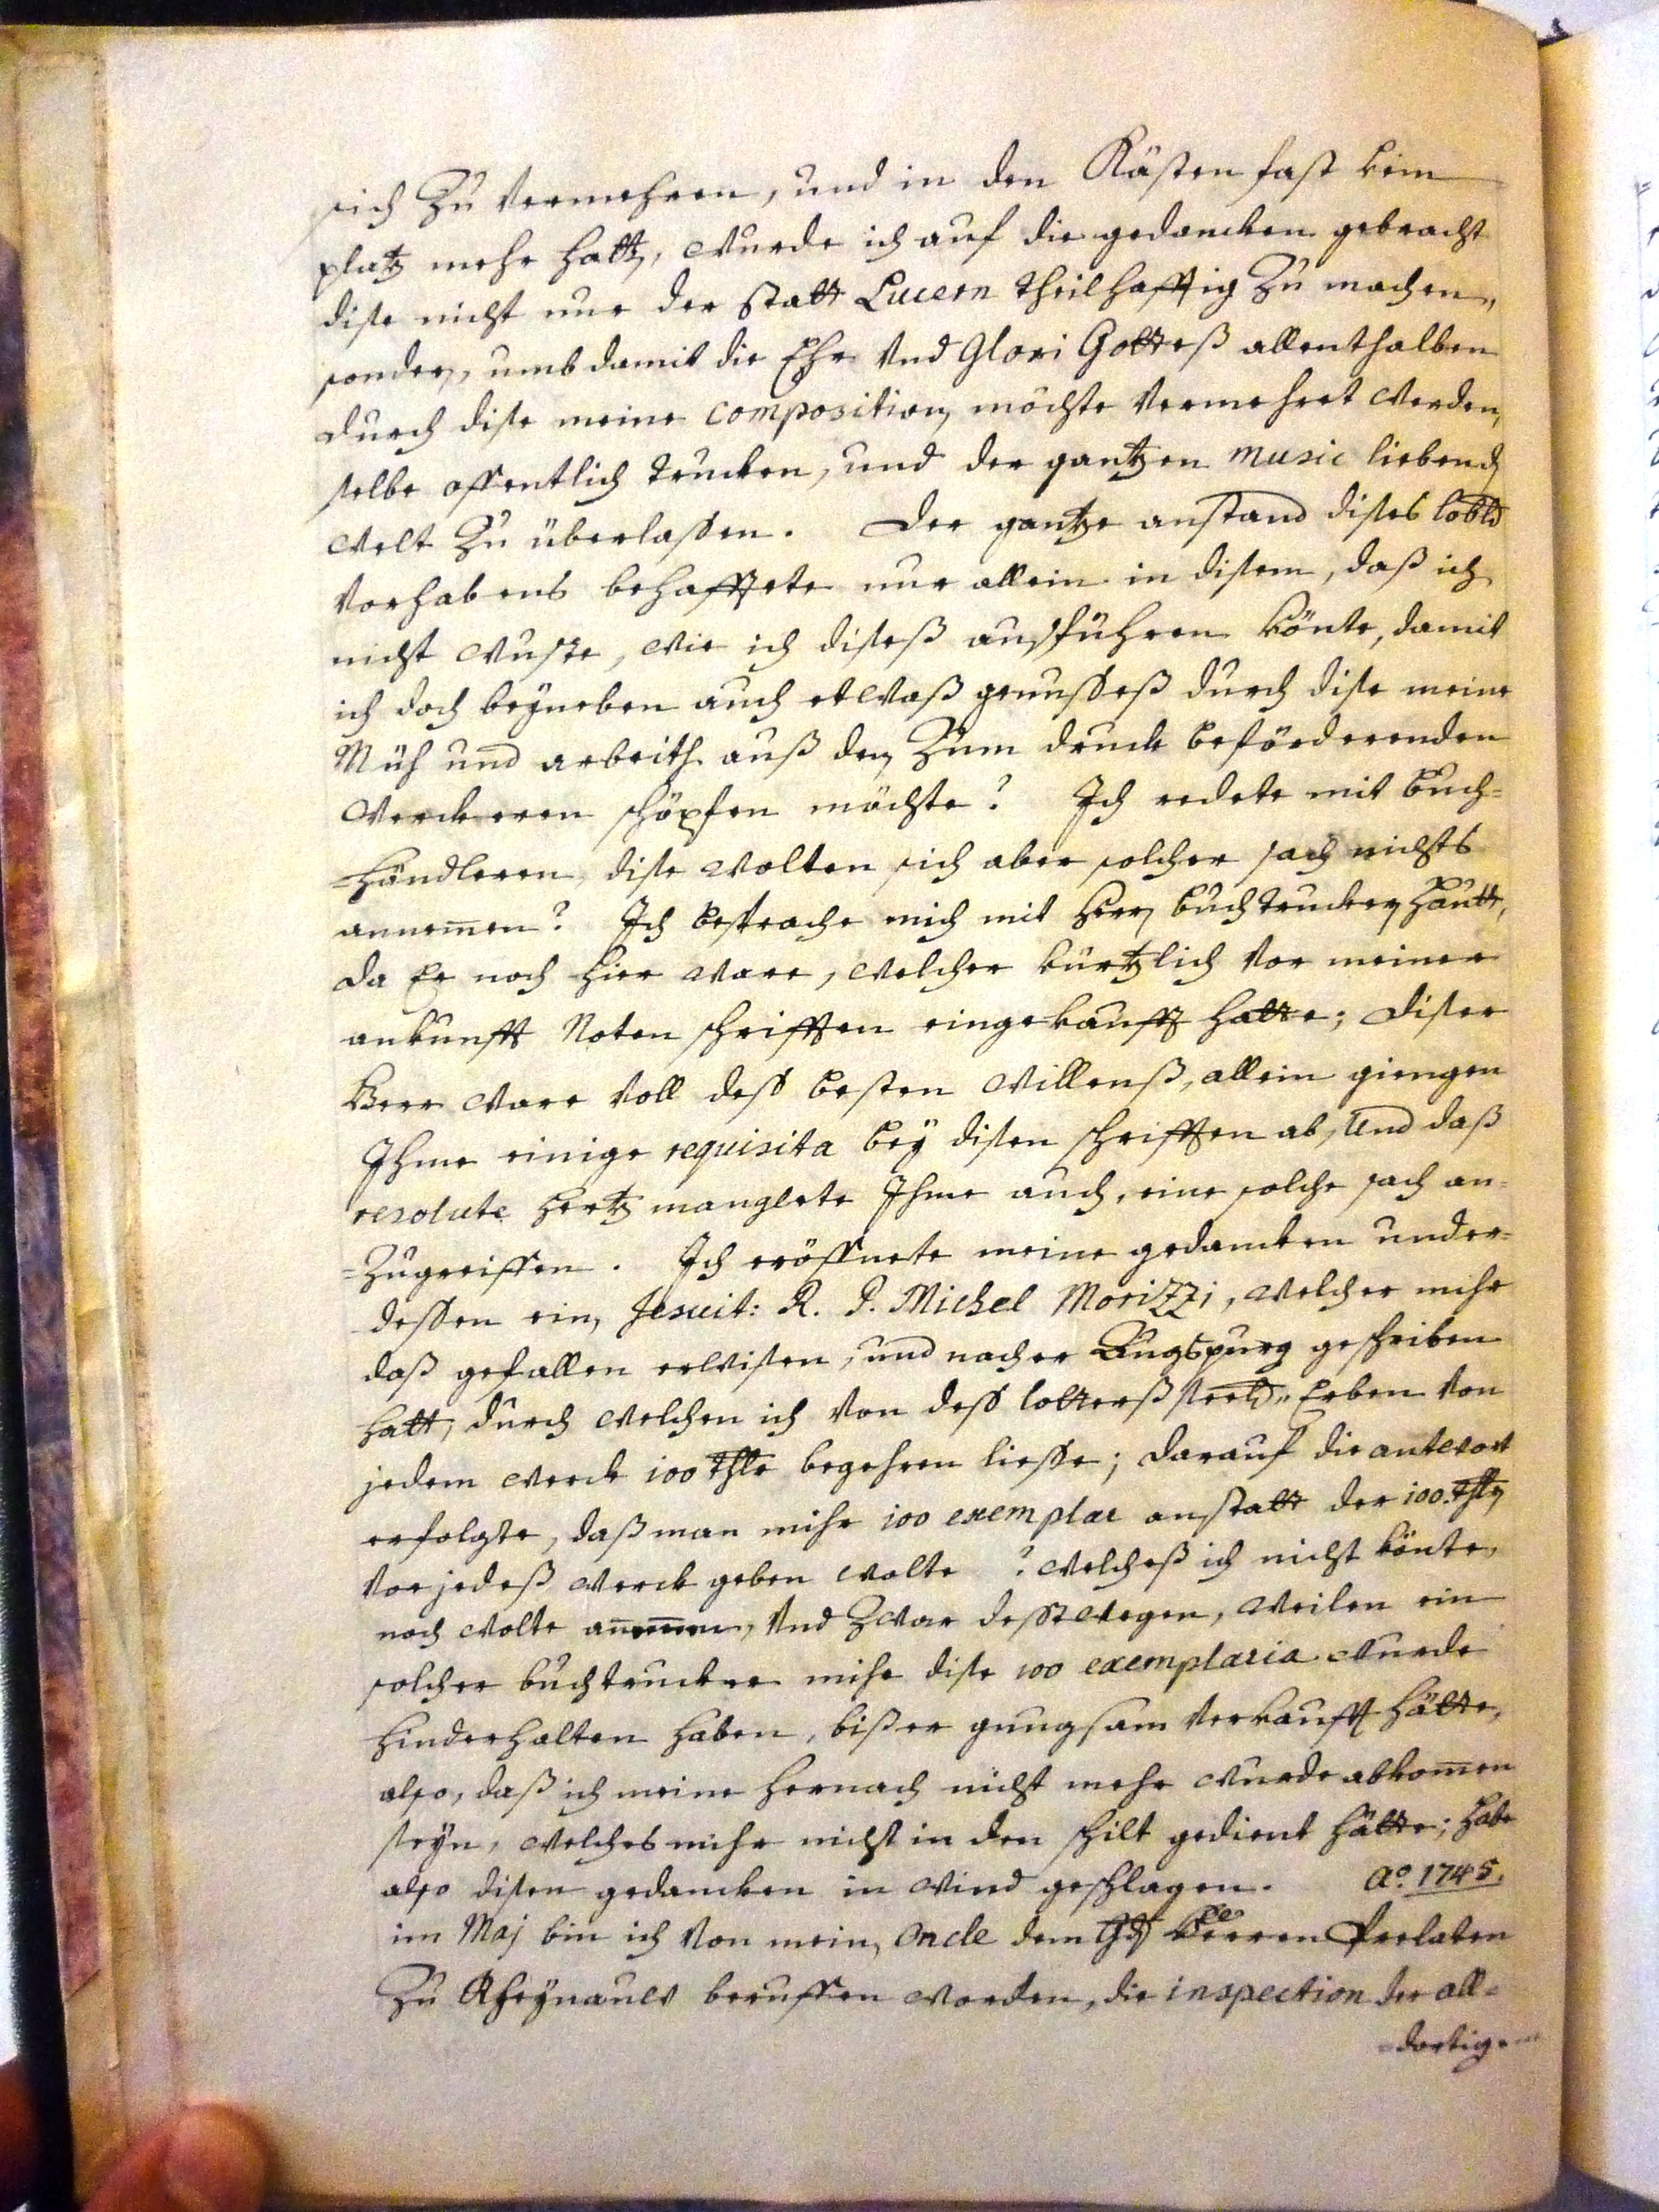 sich zu vermehren, und in den Kästen fast kein
platz mehr hatte, wurde ich auf die gedancken gebracht
dise nicht nur der statt Lucern theilhafftig zu machen,
sonder, umb damit die Ehr und Glori Gotteß allenthalben
durch dise meine composition möchte vermehret werden,
selbe offentlich trucken, und der gantzen music liebend
welt zu überlassen. Der gantze anstand dises lobld
vorhabens behafftete nur allein in disem, daß ich
nicht wuste, wie ich diseß ausführen könte, damit
ich doch beÿneben auch etwaß genusseß durch dise meine
Müh und arbeith auß den zum druck beförderenden
werckeren schöpfen möchte? Ich redete mit buch=
=händleren, dise wolten sich aber solcher sach nichts
annemen? Ich besprache mich mit Herrn buchtrucker Hautt,
da Er noch hier ware, welcher kürtzlich vor meiner
ankunfft Noten schrifften eingekaufft hatte; diser
Herr ware voll dess besten willenß, allein giengen
Ihme einige requisita beÿ disen schrifften ab, und daß
resolute hertz manglete Ihme auch, eine solche sach an=
=zugreiffen. Ich eröffnete meine gedancken under=
dessen ein Jesuit: R. P. Michel Morizzi, welcher mihr
daß gefallen erwisen, und nacher Augspurg geschriben
hatt, durch welchen ich von dess lotterß seel: Erben von
jedem werck 100 thlr begehren liesse; darauf die antwort
erfolgte, daß man mihr 100 exemplar anstatt der 100. thlr
vor jedeß werck geben wolte? welcheß ich nicht könte,
noch wolte annemen, und zwar desstwegen, weilen ein
solcher buchtrucker mihr dise 100 exemplaria wurde
hinderhalten haben, biß er gnugsam verkaufft hätte,
also, daß ich meine hernach nicht mehr wurde abkomen
seÿn, welches mihr nicht in den schilt gedient hätte; habe
also disen gedancken in wind geschlagen. Aº. 1745.
im Maj bin ich von mein Oncle dem Gdg Herren Prelaten
zu Rheÿnauw beruffen worden, die inspection der all=
=dortigen